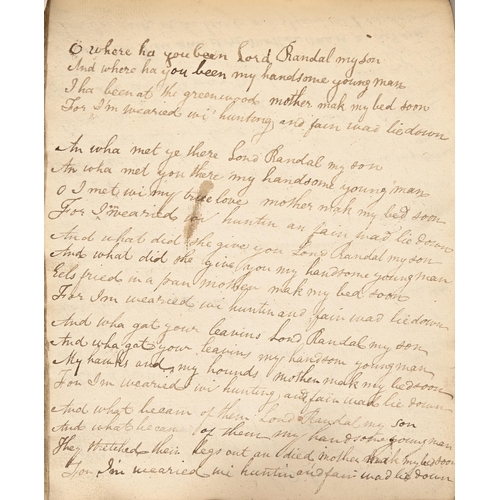 O where ha you been Lord Randal my son
And where ha you been my handsome young man
I ha been at the greenwood mother mak my bed soon
For I'm wearied wi' hunting and fain wad lie down
An wha met ye there Lord Randal my son
An wha met you there my handsome young man
O I met wi my true love mother mak my bed soon
For I'm wearied wi' huntin an fain wad lie down
And what did she give you Lord Randal my son
And what did she give you my handsome young man
Eels fried in a pan mother mak my bed soon
For I'm wearied wi huntin and fain wad lie down
And wha gat your leavins Lord Randal my son
And wha gat your leavins my handsom young man
My hawks and my hounds mother mak my bed soon
For I'm wearied wi' hunting and fain wad lie down
And what becam of them Lord Randal my son
And what becam of them my handsome young man
They stretched their legs out an died mother mak my bed soon
For I'm wearied wi huntin and fain wad lie down